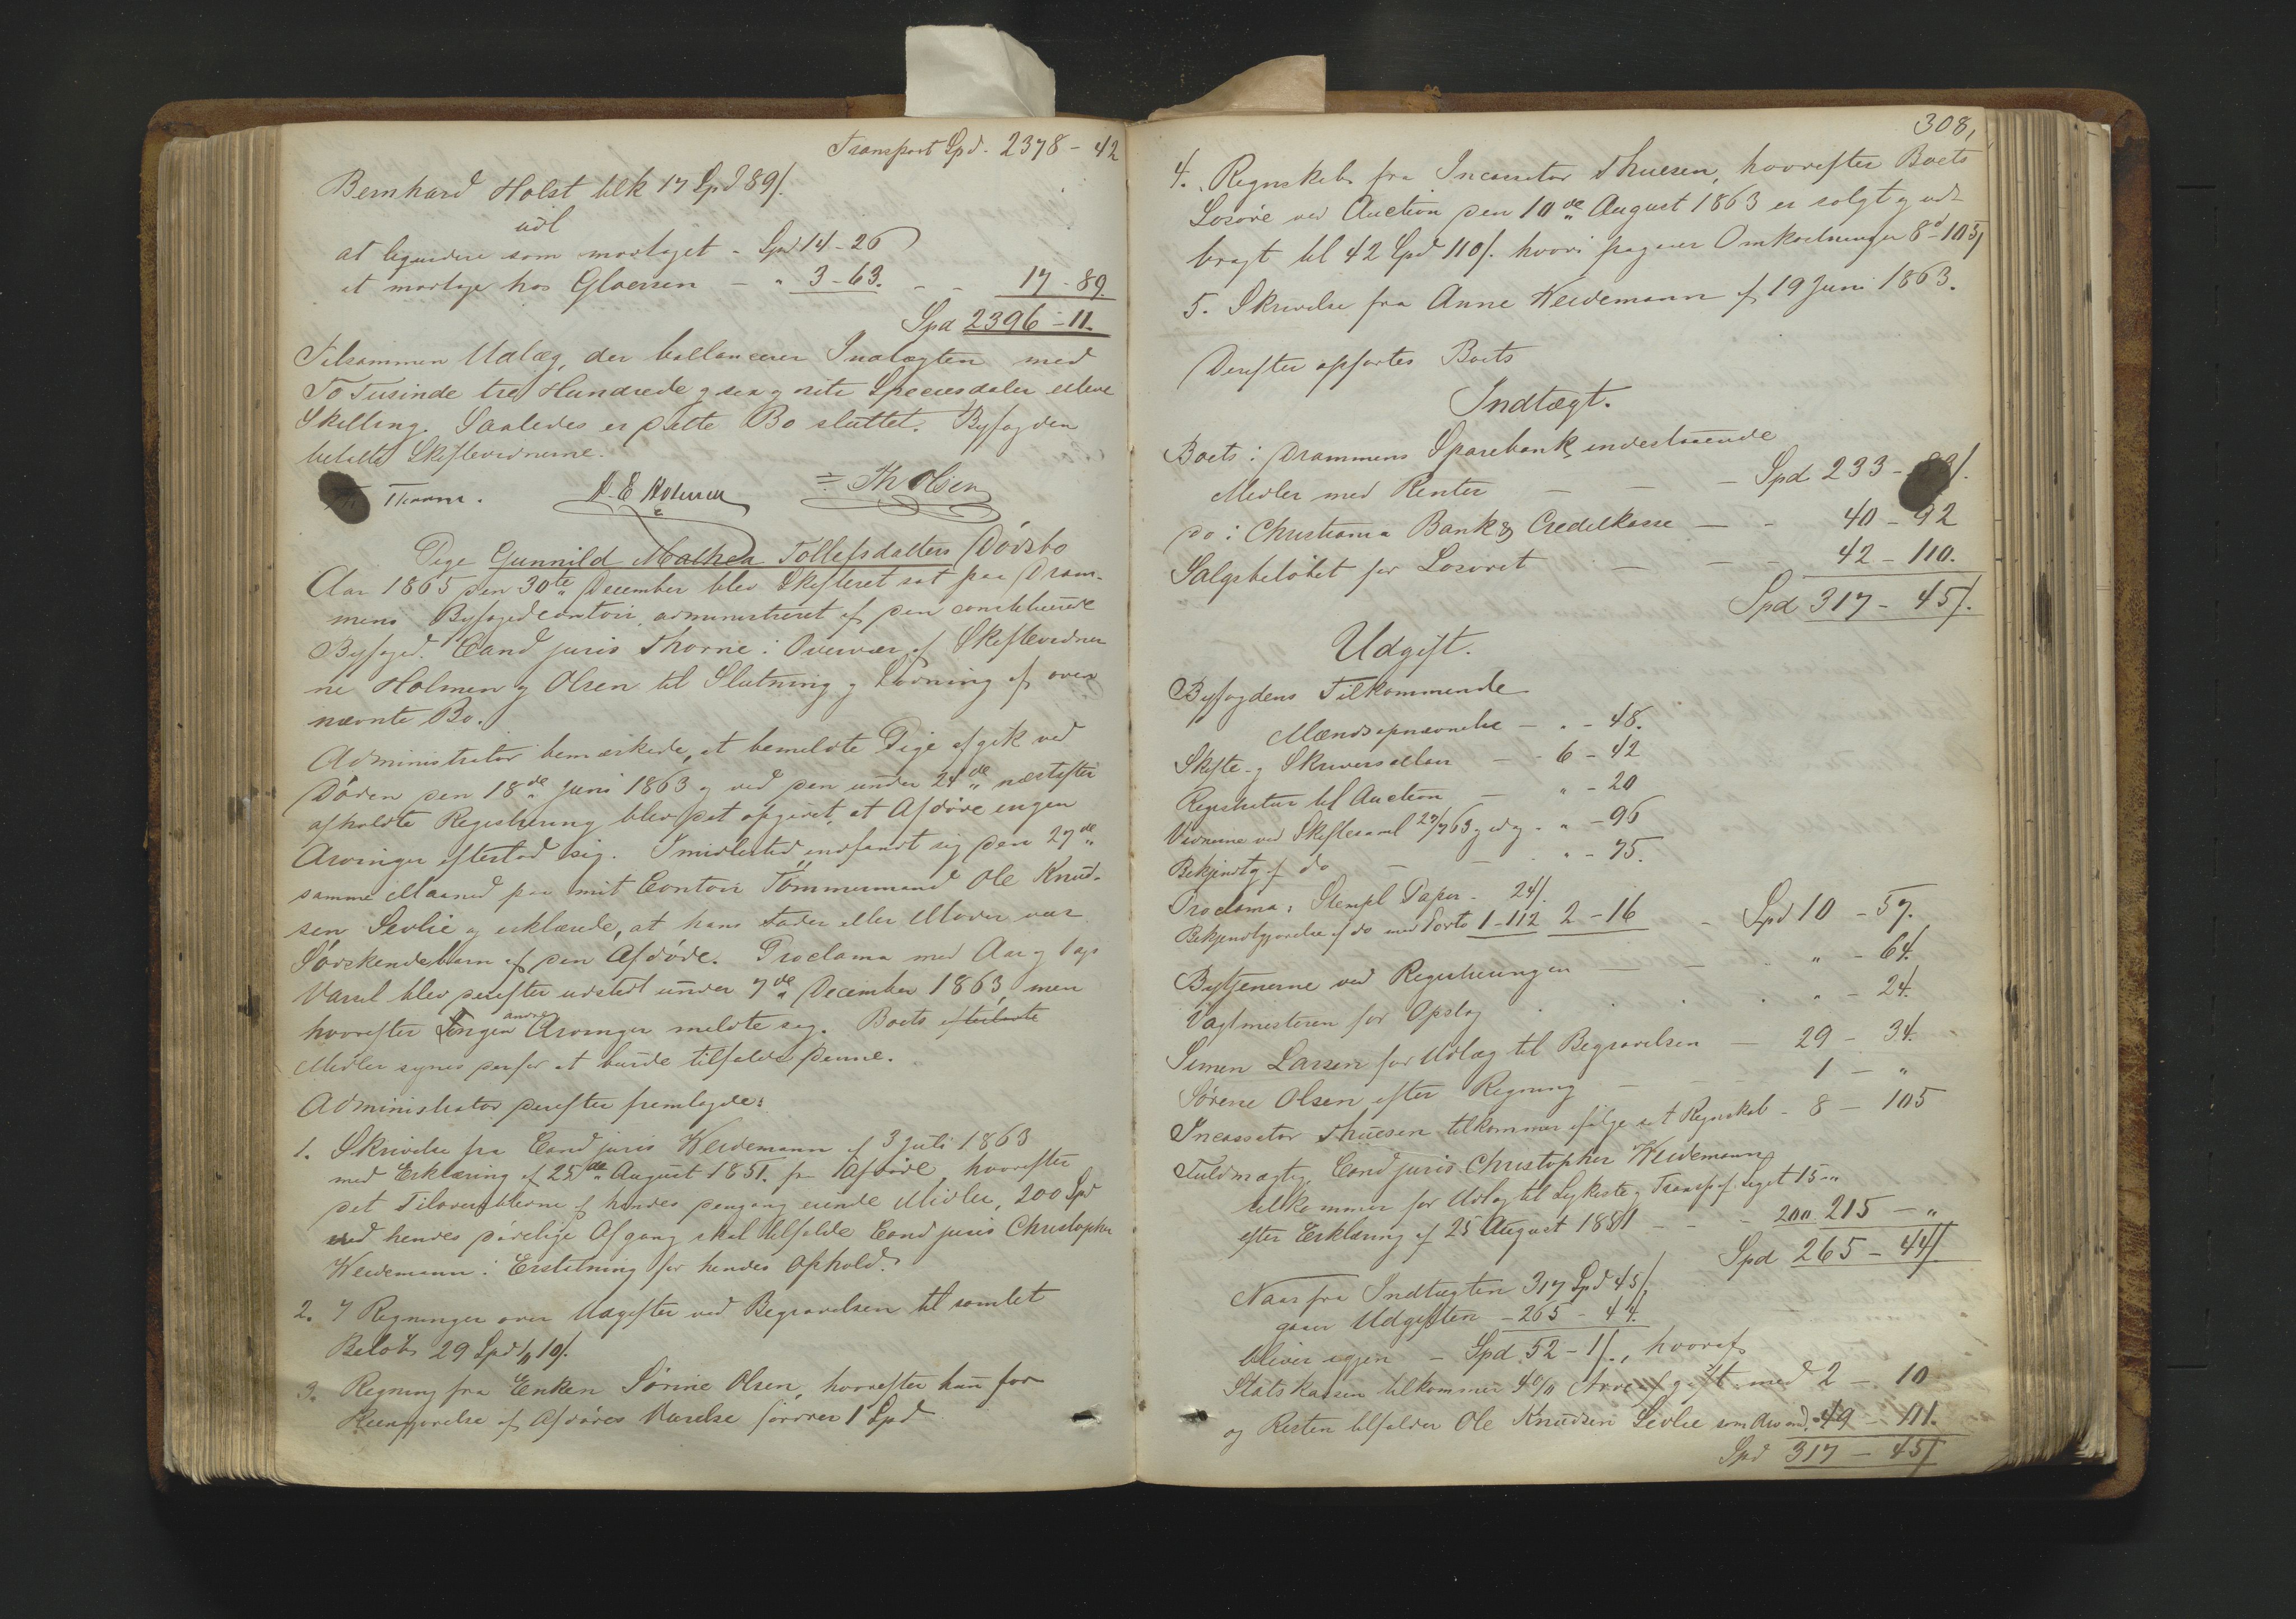 Transport Spd. 2378 - 42
Bernhard Holst tilk 17 Spd 89/.
udl
at liqvidere som modtaget - Spd 14-26
at modtage hos Gloersen - " 3-63. - - 17-89.
Spd 2396-11.
Tilsammen Udlæg, der ballancerer Indtægten med
To Tusinde tre Hundrede og sex og niti Speciesdaler elleve
Skilling. Saaledes er dette Bo sluttet. Byfogden
betalte Skiftevidnerne.
Thorne. H. E. Holmen Th Olsen
Pige Gunnild Mathea Tollefsdatters Dödsbo
Aar 1865 den 30te December blev Skifteret sat paa Dram-
mens Byfogedcontoir, administreret af den constituerede
Byfoged Cand juris Thorne i Overvær af Skiftevidner
ne Holmen og Olsen til Slutning og Lodning af oven
nævnte Bo.
Administrator bemærkede, at bemeldte Pige afgik ved
Döden den 18de Juni 1863 og ved den under 24de næstefter
afholdte Registrering blev det opgivet, at Afdöde ingen
Arvinger efterlod sig. Imidlertid indfandt sig den 27de
samme Maaned paa mit Contoir Tömmermand Ole Knud-
sen Sevlie og erklærede, at hans Fader eller Moder var
Södskendebarn af den Afdöde. Proclama med Aar og Dags
Varsel blev derefter udstedt under 7de December 1863, men
hvorefter Ingen andre Arvinger meldte sig. Boets efterladte
Midler synes derfor at burde tilfalde denne.
Administrator derefter fremlagde:
1. Skrivelse fra Cand juris Weidemann af 3 Juli 1863
med Erklæring af 25de August 1851. fra Afdöde, hvorefter
det Tiloversblevne af hendes dengang eiende Midler, 200 Spd
ved hendes dödelige Afgang skal tilfalde Cand juris Christopher
Weidemann i Erstatning for hendes Ophold.
2. 7 Regninger over Udgifter ved Begravelsen til samlet
Belöb 29 Spd 10/.
3. Regning fra Enken Sörine Olsen, hvorefter hun for
Reengjörelse af Afdödes Værelse fordrer 1 Spd
308,
4. Regnskab fra Incassator Thuesen, hvorefter Boets
Lösöre ved Auction den 10de August 1863 er solgt og ud-
bragt til 42 Spd 110/. hvori fragaaer Omkostninger 8d-105/
5. Skrivelse fra Anne Weidemann af 19 Juni 1863.
Derefter opfortes Boets
Indtægt.
Boets i Drammens Sparebank indestaaende
Midler med Renter - - - Spd 233 -
do i Christiania Bank & Creditkasse - - 40-92
Salgsbelöbet for Lösöret - - - 42-110.
Spd 317-45/.
Udgift.
Byfogdens Tilkommende
Mændsopnævnelse - " - 48.
Skifte- og Skriversallair - - 6-42
Registratur til Auction - " - 20
Vidnerne ved Skiftesaml 27/7 63 og idag - " - 96
Bekjendtg af do - - " - 75.
Proclama: Stempl Papir - 24/.
Bekjendtgjørelse af do med Porto 1-112 2-16 - Spd 10-57.
Bytjenerne ved Registreringen - - " - 64.
Vagtmesteren for Opslag . . . " - 24.
Simen Larsen for Udlæg til Begravelsen - 29-34.
Sörine Olsen efter Regning - - - 1 - "
Incassator Thuesen tilkommer ifölge Regnskab - 8-105
Fuldmægtig Cand juris Christopher Weidemann
tilkommer for Udlæg til Ligkiste og Transp af Liget 15-"
efter Erklæring af 25 August 1851 - - - 200. 215 - "
Spd 265-44/.
Naar fra Indtægten 317 Spd 45/
gaaer Udgiften - 265-44.
bliver igjen - Spd 52-1/., hvoraf
Statskassen tilkommer 4% Arveafgift med 2-10
og Resten tilfalder Ole Knudsen Sevlie som Arv med 49-111.
Spd 317-45/